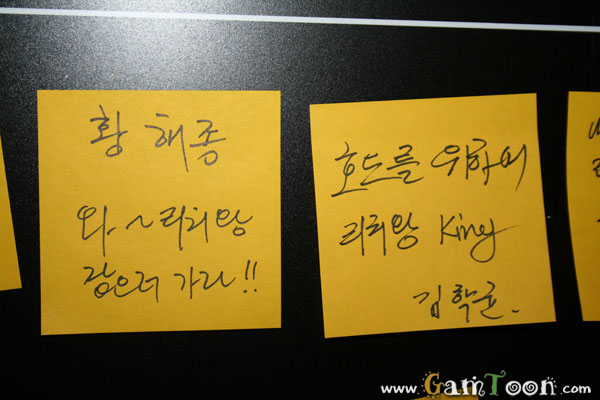 황 해 종
와. ~리치왕
잡으러 가자!!
호드를 위하여
리치왕 King
김학균.
www.GamToon.com